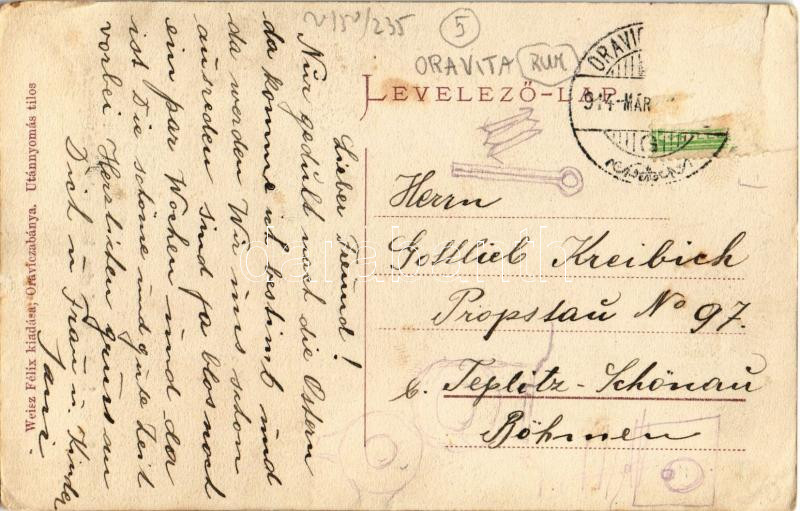 V/50/235
5
ORAVITA
RUM
LEVELEZŐ-LAP.
ORAVIC
914 MÁR
Herrn
Gottlieb Kreibich
Propstau No 97.
b. Teplitz-Schönau
Böhmen
Lieber Freund!
Nur gedult nach die Ostern
da komme ich bestimt und
da werden Wir uns schon
ausreden sind ja blos noch
ein par Wochen und da
ist Die schöne und gute Zeit
vorbei Herzlichen gruss an
Dich u Frau u. Kinder
Weisz Félix kiadása; Oraviczabánya. Utánnyomás tilos
darabanth